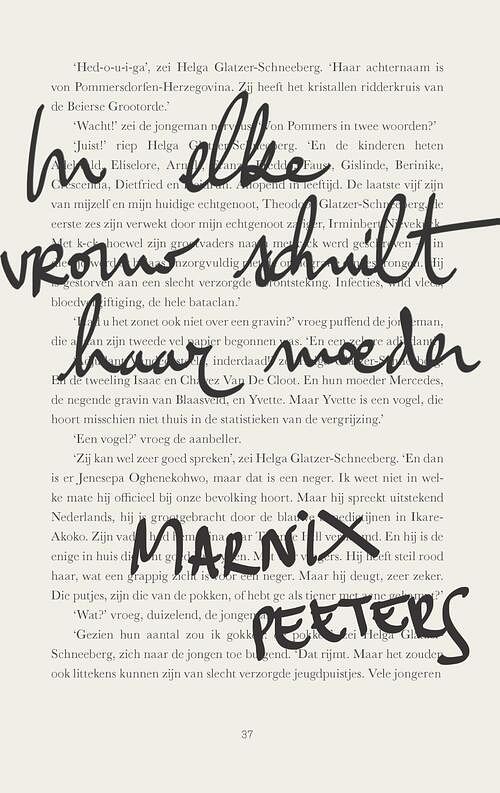 ‘Hed-o-u-i-ga’, zei Helga Glatzer-Schneeberg. ‘Haar achternaam is
von Pommersdorfen-Herzegovina. Zij heeft het kristallen ridderkruis van
de Beierse Grootorde.’
‘Wacht!’ zei de jongeman Von Pommers in twee woorden?’
‘Juist!’ riep Helga ‘En de kinderen heten
Eliselore, Gislinde, Berinike,
Dietfried en Aflopend in leeftijd. De laatste vijf zijn
In elke
van mijzelf en mijn huidige echtgenoot, Glatzer-Schneeberg, de
eerste zes zijn verwekt door mijn echtgenoot zaliger, Irminbert
Met k-ck, hoewel zijn
vrouw schuilt
gestorven aan een slecht verzorgde
de hele bataclan.’
u het zonet ook niet over een gravin?’ vroeg puffend de jongeman,
die aan zijn tweede vel papier begonnen was. ‘En een
haar moeder
inderdaad!’
En de tweeling Isaac en Van De Cloot. En hun moeder Mercedes,
de negende gravin van Blaasveld, en Yvette. Maar Yvette is een vogel, die
hoort misschien niet thuis in de statistieken van de vergrijzing.’
‘Een vogel?’ vroeg de aanbeller.
‘Zij kan wel zeer goed spreken’, zei Helga Glatzer-Schneeberg. ‘En dan
is er Jenesepa Oghenekohwo, maar dat is een neger. Ik weet niet in wel-
ke mate hij officieel bij onze bevolking hoort. Maar hij spreekt uitstekend
Nederlands, hij is grootgebracht door de in Ikare-
Akoko. Zijn En hij is de
enige in huis die Hij heeft steil rood
MARNIX
haar, wat een grappig zicht is voor een neger. Maar hij deugt, zeer zeker.
Die putjes, zijn die van de pokken, of hebt ge als tiener met acne
‘Wat?’ vroeg, duizelend, de
PEETERS
‘Gezien hun aantal zou ik zei Helga
Schneeberg, zich naar de jongen toe buigend. ‘Dat rijmt. Maar het zouden
ook littekens kunnen zijn van slecht verzorgde jeugdpuistjes. Vele jongeren
37